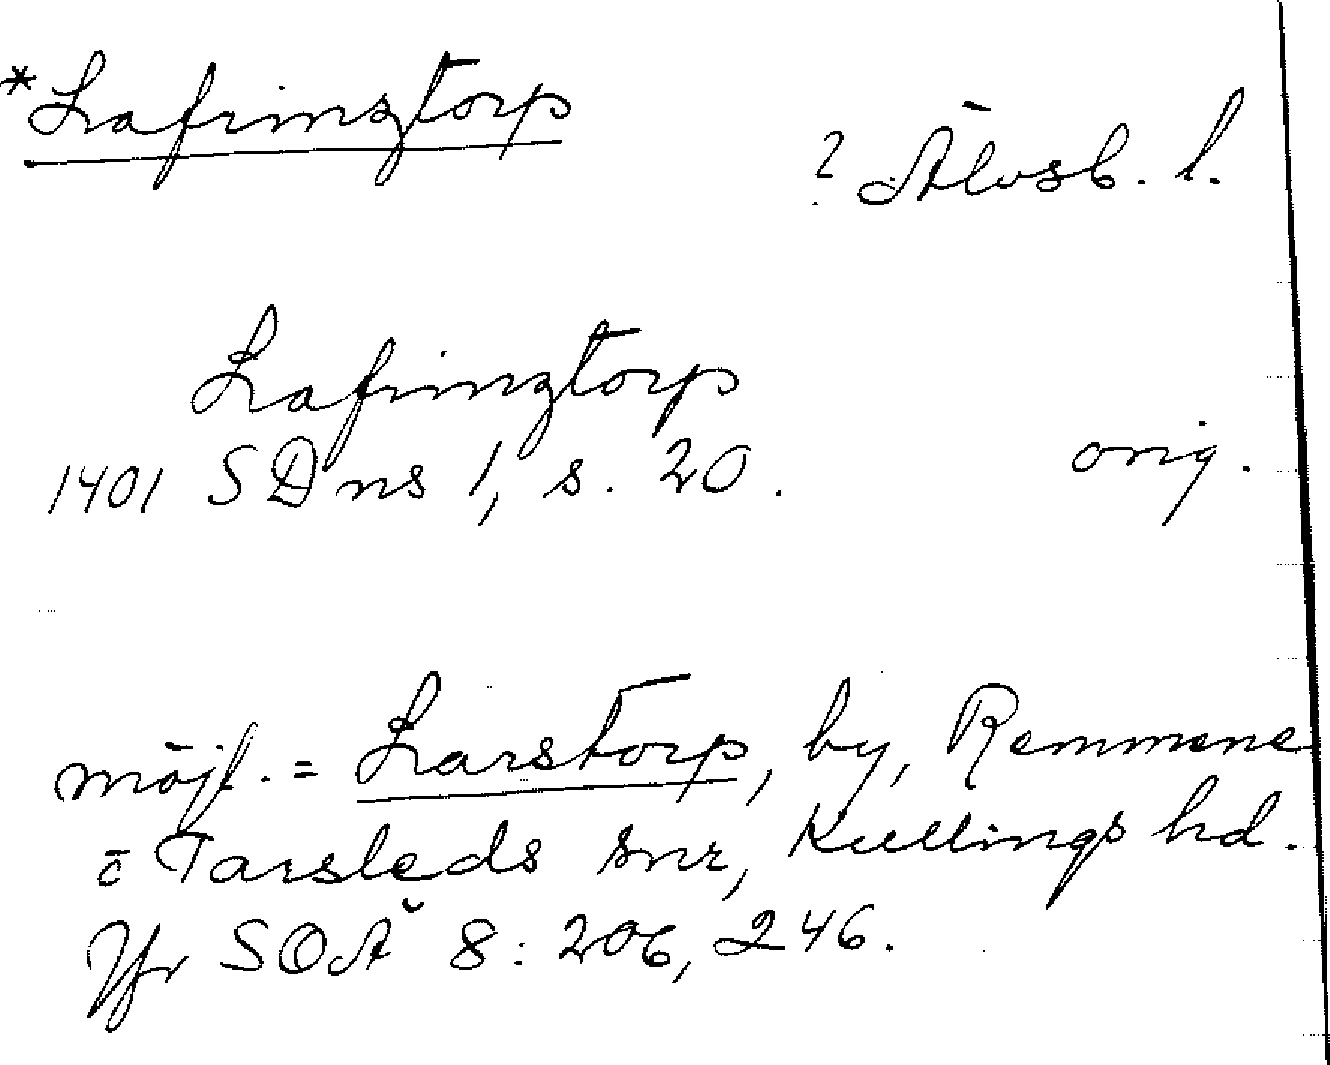 *Lafrinztorp
? Älvsb. l.
Lafrinztorp
1401 SDns 1, s. 20. orig.
möjl. = Larstorp, by, Remmene
o Tarsleds snr, Kullings hd.
Jfr SOÄ 8: 206, 246.